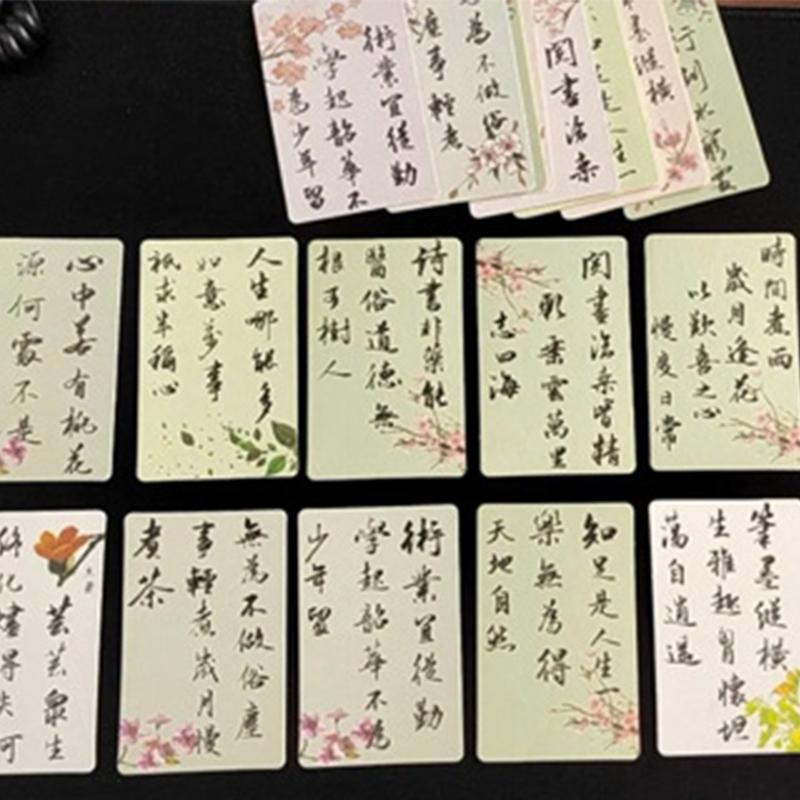 術業宜從勤
學起韶華不
為少年留
為不做俗
塵事輕煮
閱書法柔
足是人生一
墨縱橫
行到水窮處
心中若有桃花
源何處不是
人生哪能多
如意萬事
祇求半稱心
詩書非藥能
醫俗道德無
根可樹人
閱書法柔皆精
乘雲萬里
志四海
時間煮雨
歲月逢花
以歡喜之心
慢度日常
芸芸眾生
無為不做俗塵
事輕煮歲月慢
煮茶
術業宜從勤
學起韶華不為
少年留
知足是人生一
樂無為得
天地自然
筆墨縱橫
生雅趣胸懷坦
自逍遙